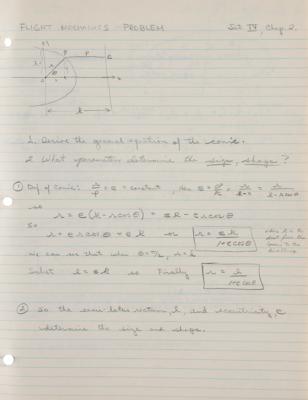 FLIGHT MECHANICS PROBLEM Set IV, Chap. 2.
1. Derive the general equation of the conic.
2. What parameters determine the size, shape?
① Def of Conic: r/p = e = constant,
so r = e(k - r cosθ) = ek - er cosθ
So
r + er cosθ = ek or r = ek / 1+e cosθ
We can see that when θ=π/2, r = h
Subst h = ek so Finally r = h / 1+e cosθ
② So the semi-latus rectum, h, and eccentricity, e
determine the size and shape.